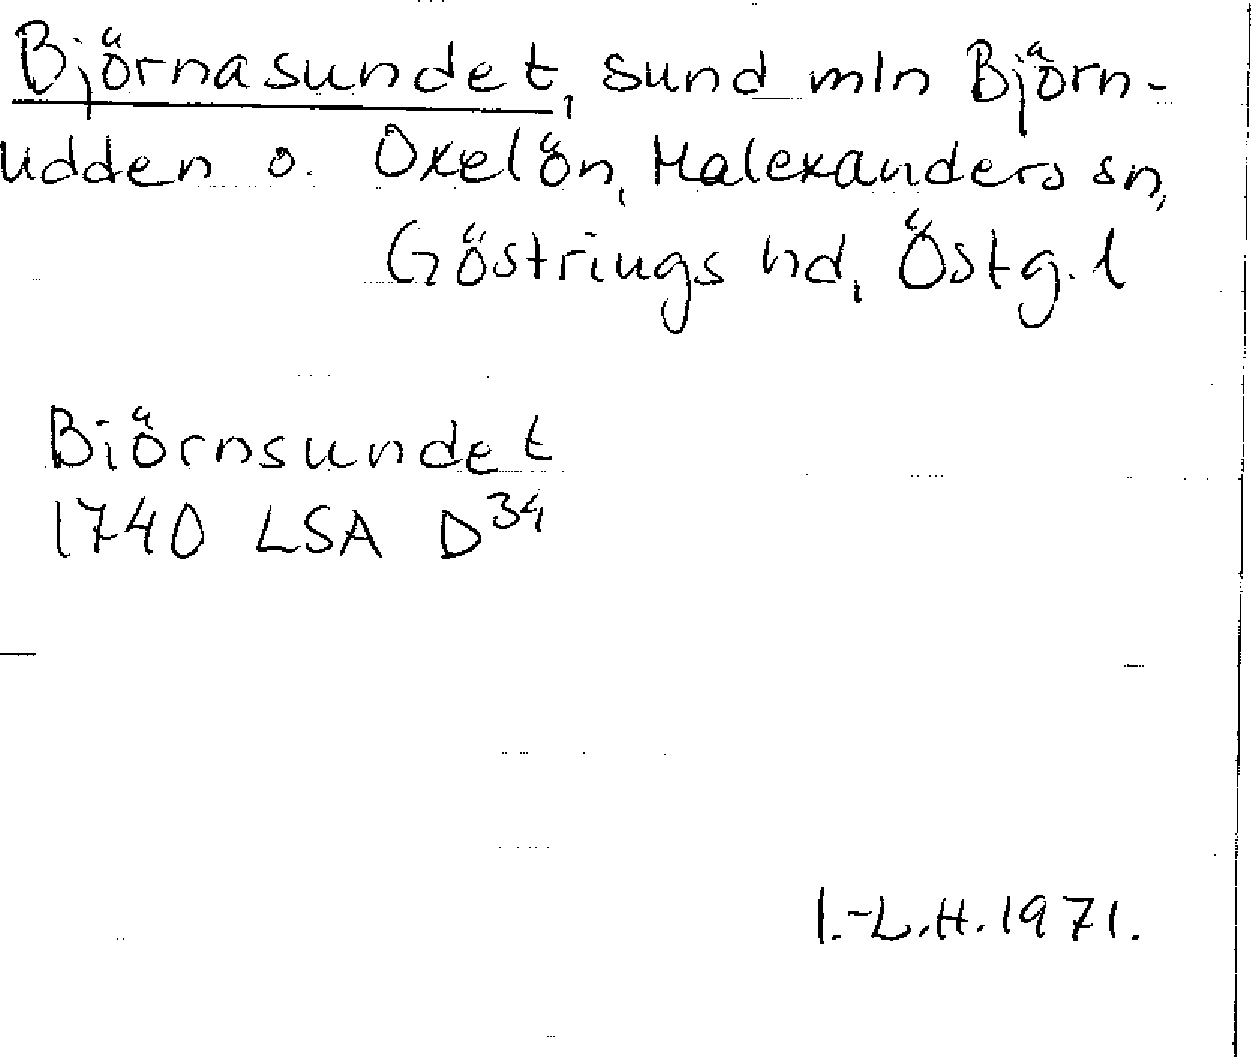 Björnasundet, sund mln Björn-
udden o. Oxelön, Malexanders sn,
Göstrings hd, Östg. l
Biörnsundet
1740 LSA D34
I.-L.H. 1971.